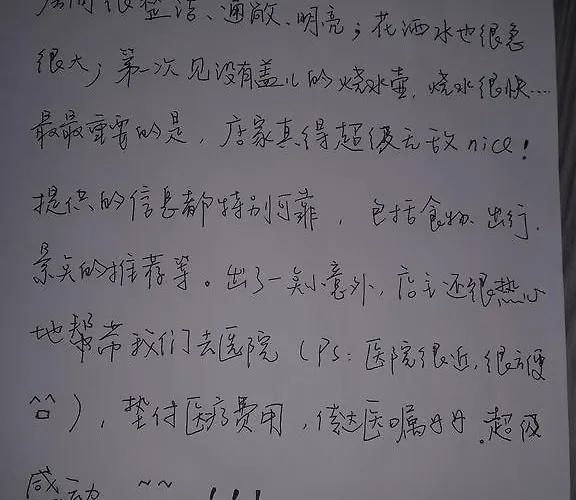 房间很整洁、通敞、明亮；花洒水也很急
很大；第一次见没有盖儿的烧水壶，烧水很快....
最最重要的是，店家真得超级无敌nice！
提供的信息都特别可靠，包括食物、出行、
景点的推荐等。出了一点小意外，店主还很热心
地帮带我们去医院（PS：医院很近，很方便
^口^），垫付医疗费用，传达医嘱
超级
感动 ~~ ！！！